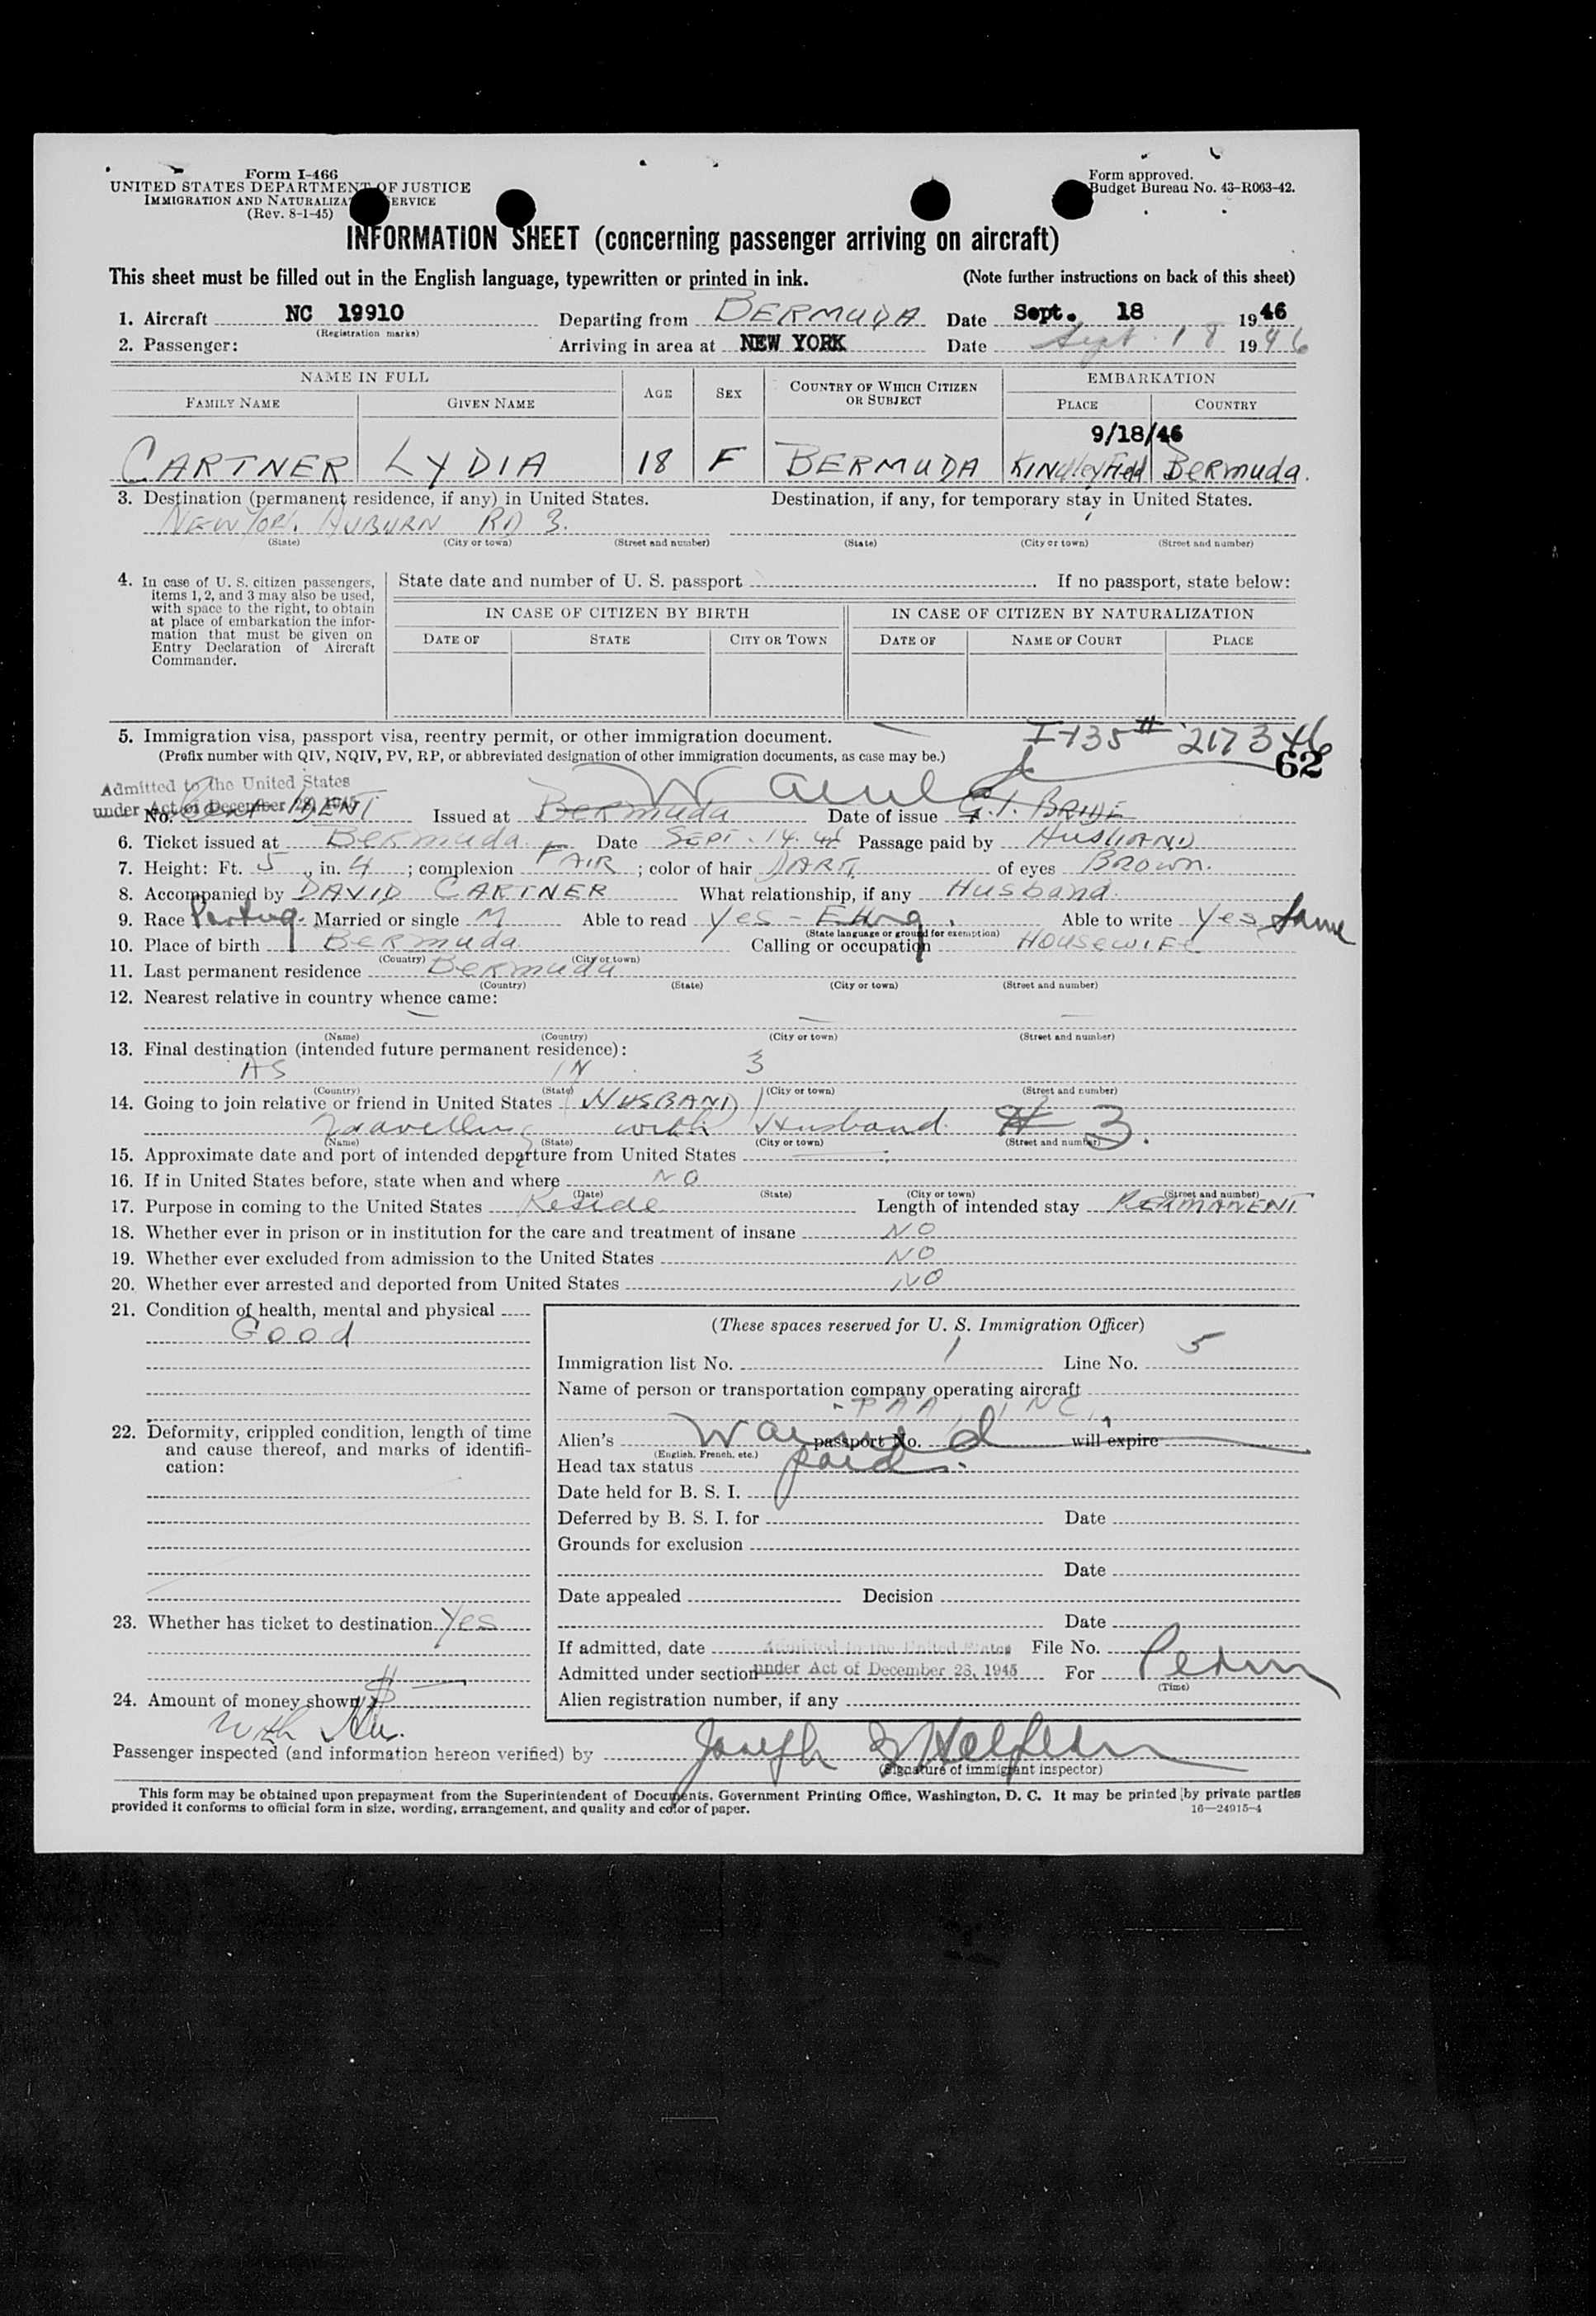 Form I-466
UNITED STATES DEPARTMENT OF JUSTICE
IMMIGRATION AND NATURALIZA ERVICE
(Rev. 8-1-45)
Form approved.
Budget Bureau No. 43-R063-42.
INFORMATION SHEET (concerning passenger arriving on aircraft)
This sheet must be filled out in the English language, typewritten or printed in ink. (Note further instructions on back of this sheet)
1. Aircraft NC 19910 Departing from BERMUDA Date Sept. 18 1946
(Registration marks)
2. Passenger: Arriving in area at NEW YORK Date Sept. 18 1946
NAME IN FULL AGE SEX COUNTRY OF WHICH CITIZEN OR SUBJECT EMBARKATION
FAMILY NAME GIVEN NAME PLACE COUNTRY
9/18/46
CARTNER LYDIA 18 F BERMUDA Kindley Field Bermuda.
3. Destination (permanent residence, if any) in United States. Destination, if any, for temporary stay in United States.
NEW YORK. AUBURN RD 3.
(State) (City or town) (Street and number) (State) (City or town) (Street and number)
4. In case of U. S. citizen passengers, items 1, 2, and 3 may also be used, with space to the right, to obtain at place of embarkation the information that must be given on Entry Declaration of Aircraft Commander.
State date and number of U. S. passport . If no passport, state below:
IN CASE OF CITIZEN BY BIRTH IN CASE OF CITIZEN BY NATURALIZATION
DATE OF STATE CITY OR TOWN DATE OF NAME OF COURT PLACE
5. Immigration visa, passport visa, reentry permit, or other immigration document. I-135 # 217346
(Prefix number with QIV, NQIV, PV, RP, or abbreviated designation of other immigration documents, as case may be.) 62
Admitted to the United States
under Act of December 28, 1945
Waived
No. IDENT Issued at Bermuda Date of issue G.I. BRIDE
6. Ticket issued at Bermuda Date SEPT. 14. 46 Passage paid by HUSBAND
7. Height: Ft. 5, in. 4; complexion FAIR; color of hair DARK of eyes BROWN.
8. Accompanied by DAVID CARTNER What relationship, if any Husband.
9. Race Portug. Married or single M Able to read Yes - Eng. Able to write Yes Same
(State language or ground for exemption)
10. Place of birth Bermuda Calling or occupation HOUSEWIFE
(Country) (City or town)
11. Last permanent residence Bermuda
(Country) (State) (City or town) (Street and number)
12. Nearest relative in country whence came:
(Name) (Country) (City or town) (Street and number)
13. Final destination (intended future permanent residence):
AS IN 3
(Country) (State) (City or town) (Street and number)
14. Going to join relative or friend in United States (HUSBAND)
Travelling with Husband # 3.
(Name) (State) (City or town) (Street and number)
15. Approximate date and port of intended departure from United States
16. If in United States before, state when and where NO
(Date) (State) (City or town) (Street and number)
17. Purpose in coming to the United States Reside Length of intended stay PERMANENT
18. Whether ever in prison or in institution for the care and treatment of insane NO
19. Whether ever excluded from admission to the United States NO
20. Whether ever arrested and deported from United States NO
21. Condition of health, mental and physical
Good
(These spaces reserved for U. S. Immigration Officer)
Immigration list No. 1 Line No. 5
Name of person or transportation company operating aircraft
PAA, INC.
22. Deformity, crippled condition, length of time and cause thereof, and marks of identification:
Alien's Waived passport No. will expire
(English, French, etc.)
Head tax status paid.
Date held for B. S. I.
Deferred by B. S. I. for Date
Grounds for exclusion
Date
Date appealed Decision
23. Whether has ticket to destination Yes
Date
If admitted, date Admitted to the United States File No.
Admitted under section under Act of December 28, 1945 For Perm
(Time)
24. Amount of money shown $
With Hus.
Alien registration number, if any
Passenger inspected (and information hereon verified) by Joseph
(Signature of immigrant inspector)
This form may be obtained upon prepayment from the Superintendent of Documents, Government Printing Office, Washington, D. C. It may be printed by private parties
provided it conforms to official form in size, wording, arrangement, and quality and color of paper. 16—24915-4